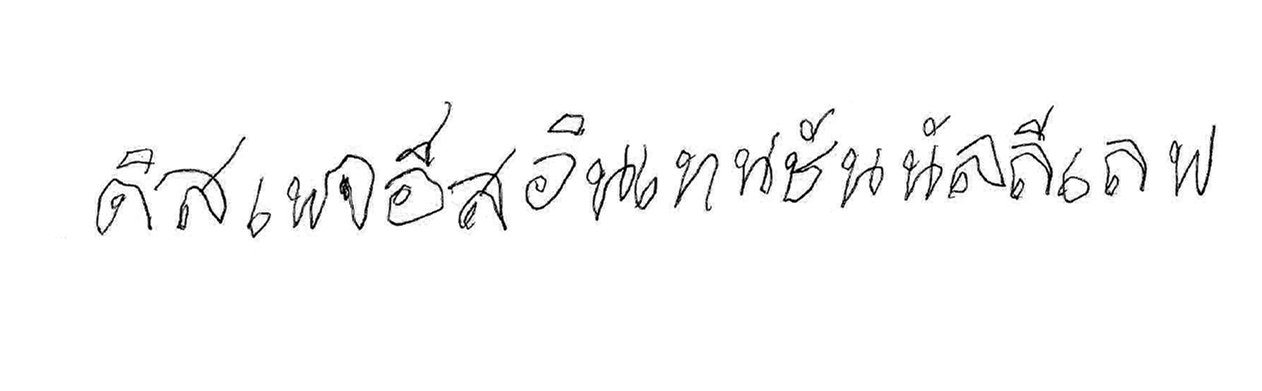 ดิสเพจอีสอินเทนชันนัลลีเลฟ